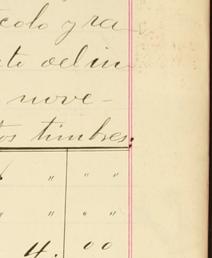 colo y ra-
to del in-
nove-
tos timbres.
" " "
" " "
4. 00